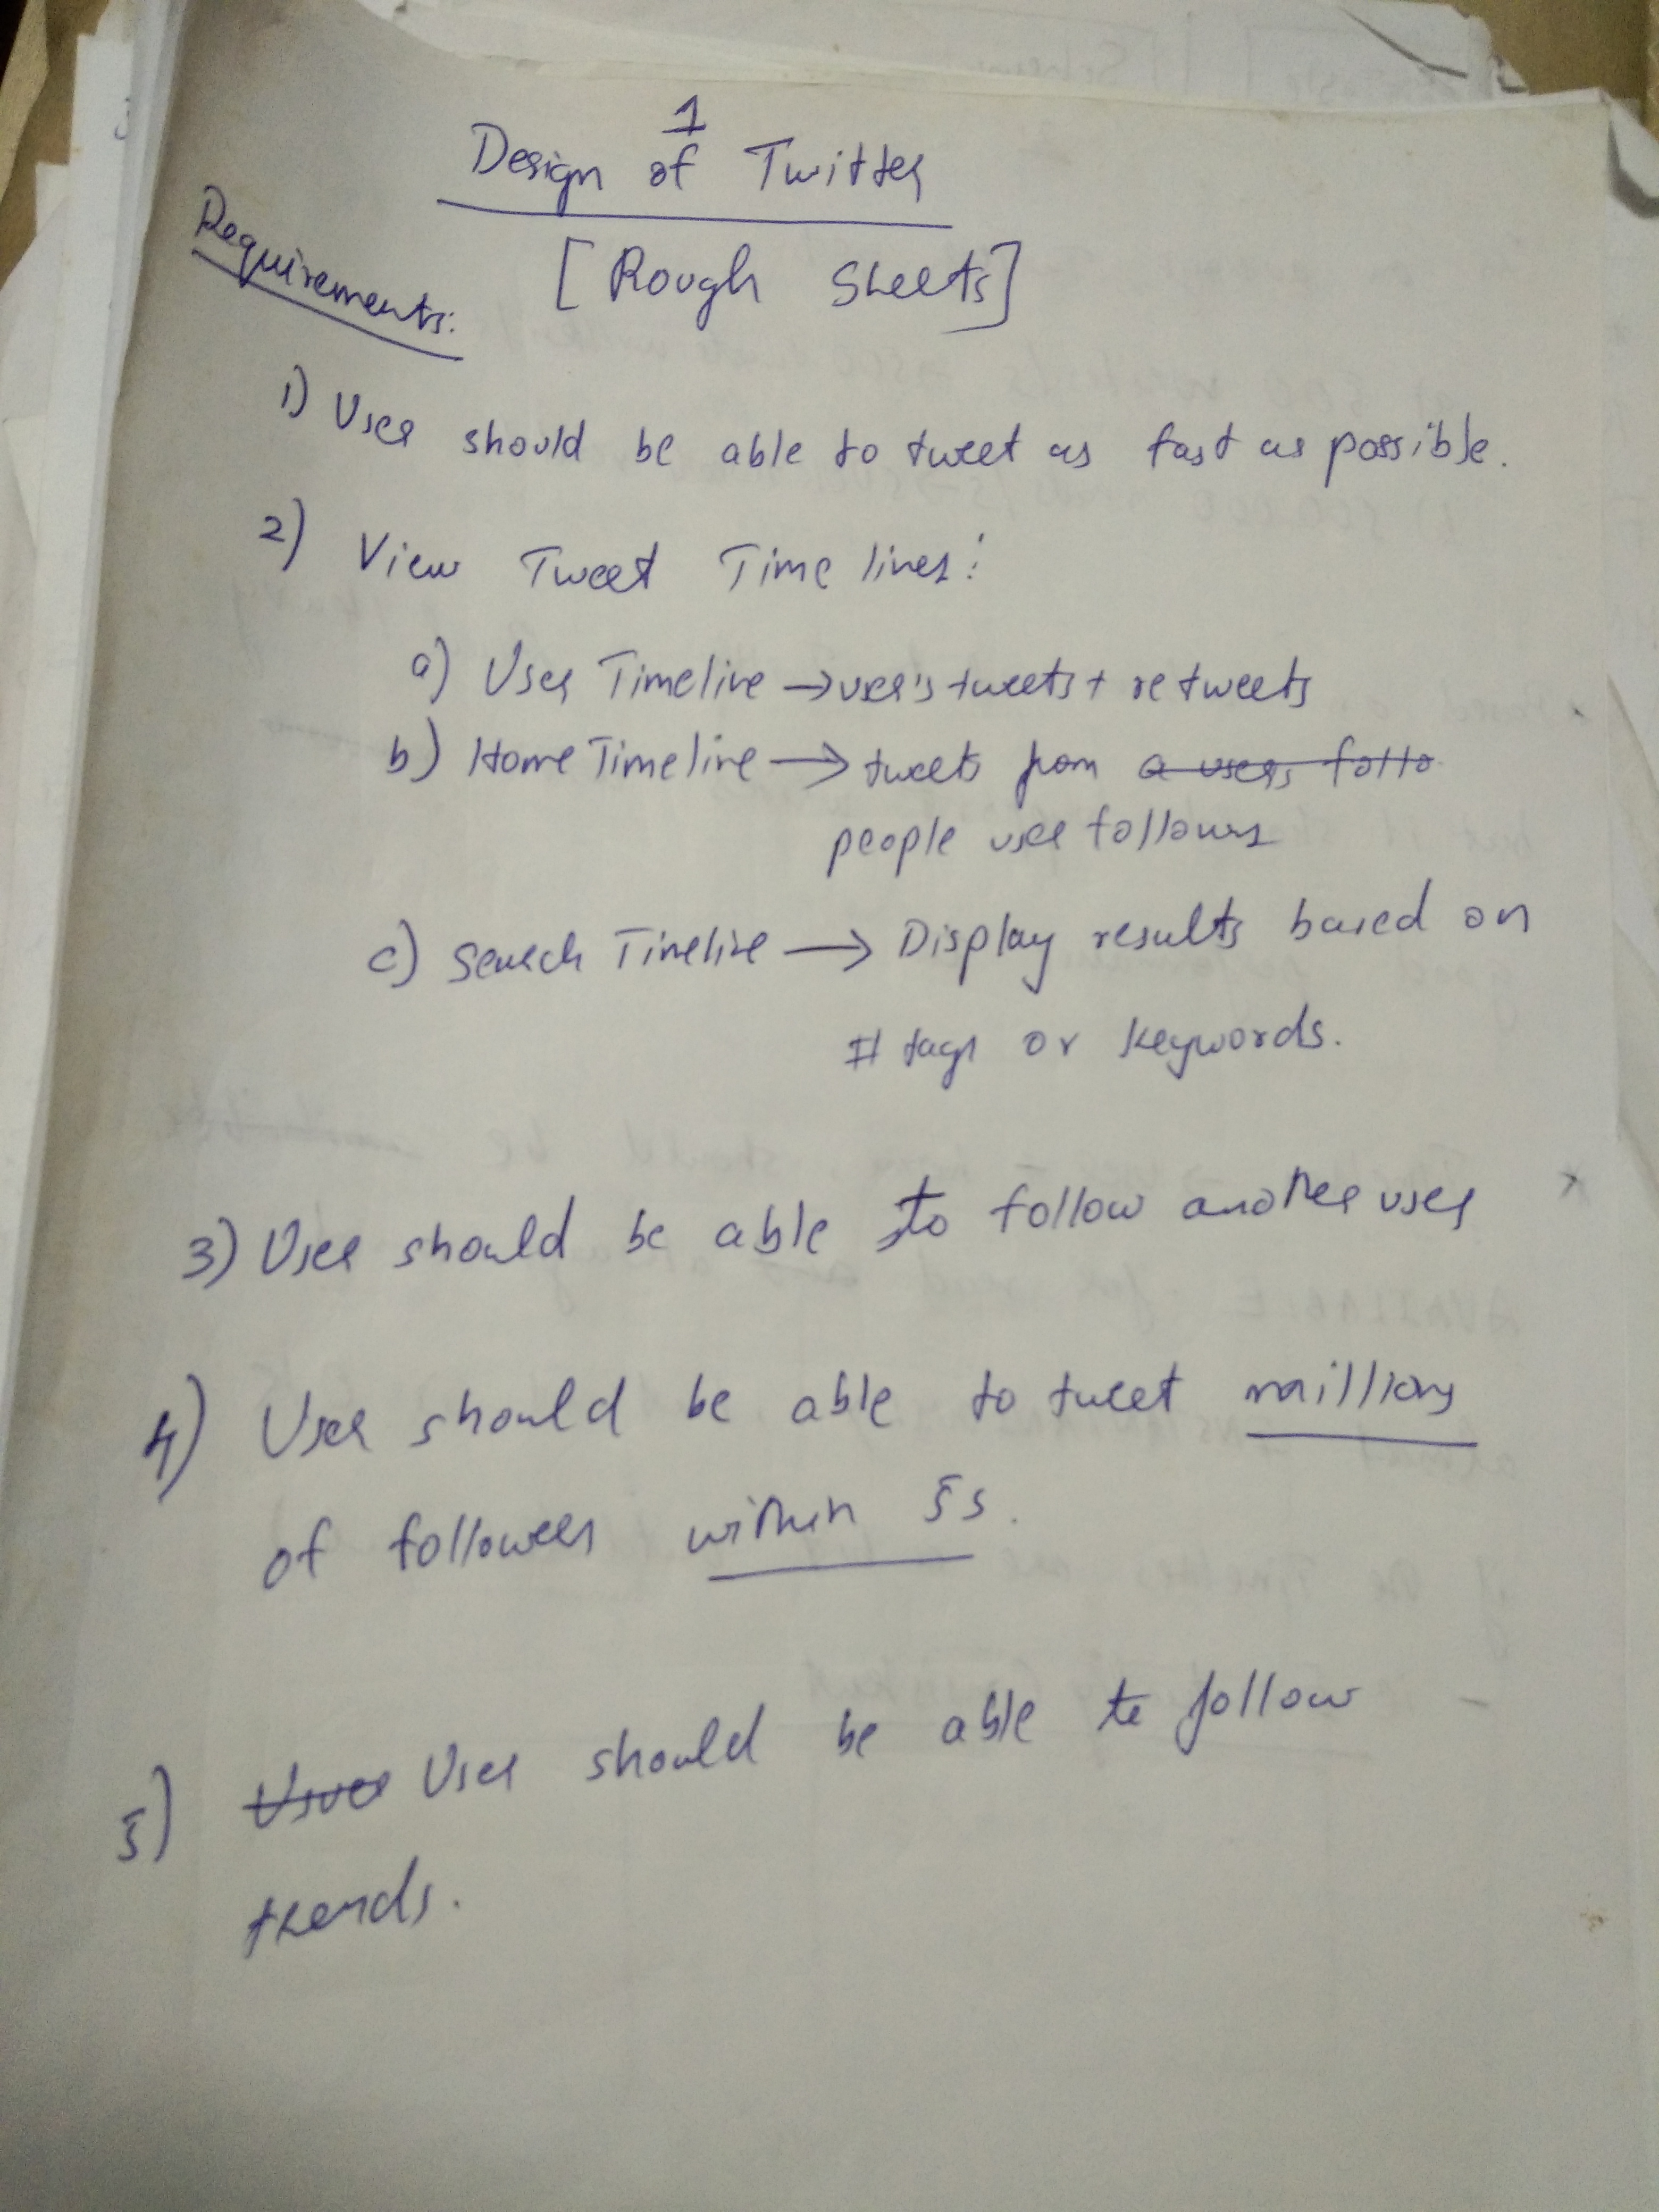 1
Design of Twitter
[Rough Sheets]
Requirements:
1) User should be able to tweet as fast as possible.
2) View Tweet Time lines:
a) User Timeline → user's tweets + retweets
b) Home Timeline → tweets from a users follo
people user follows
c) Search Timeline → Display results based on
# tags or keywords.
3) User should be able to follow another user
4) User should be able to tweet millions
of followers within 5s.
5) User User should be able to follow
trends.